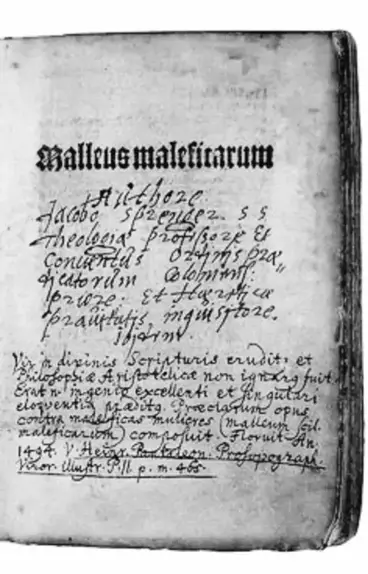 Malleus maleficarum
Authore
Jacobo Sprenger. S S
Theologiæ professore Et
Conventus Ordinis præ„
dicatorum
priore. Et Hæreticæ
pravitatis, inquisitore.
Vir in divinis Scripturis erudit9 et
Philosophiæ Aristotelicæ non ignarg fuit.
Erat n. ingenio excellenti et singulari
eloquentia præditg. Præclarum opus
contra maleficas mulieres (malleum scil.
maleficarum) composuit. Floruit An.
1494. V. Henr. Pantaleon. Prosopograph.
Viror. illustr. P. II. p. m. 465.